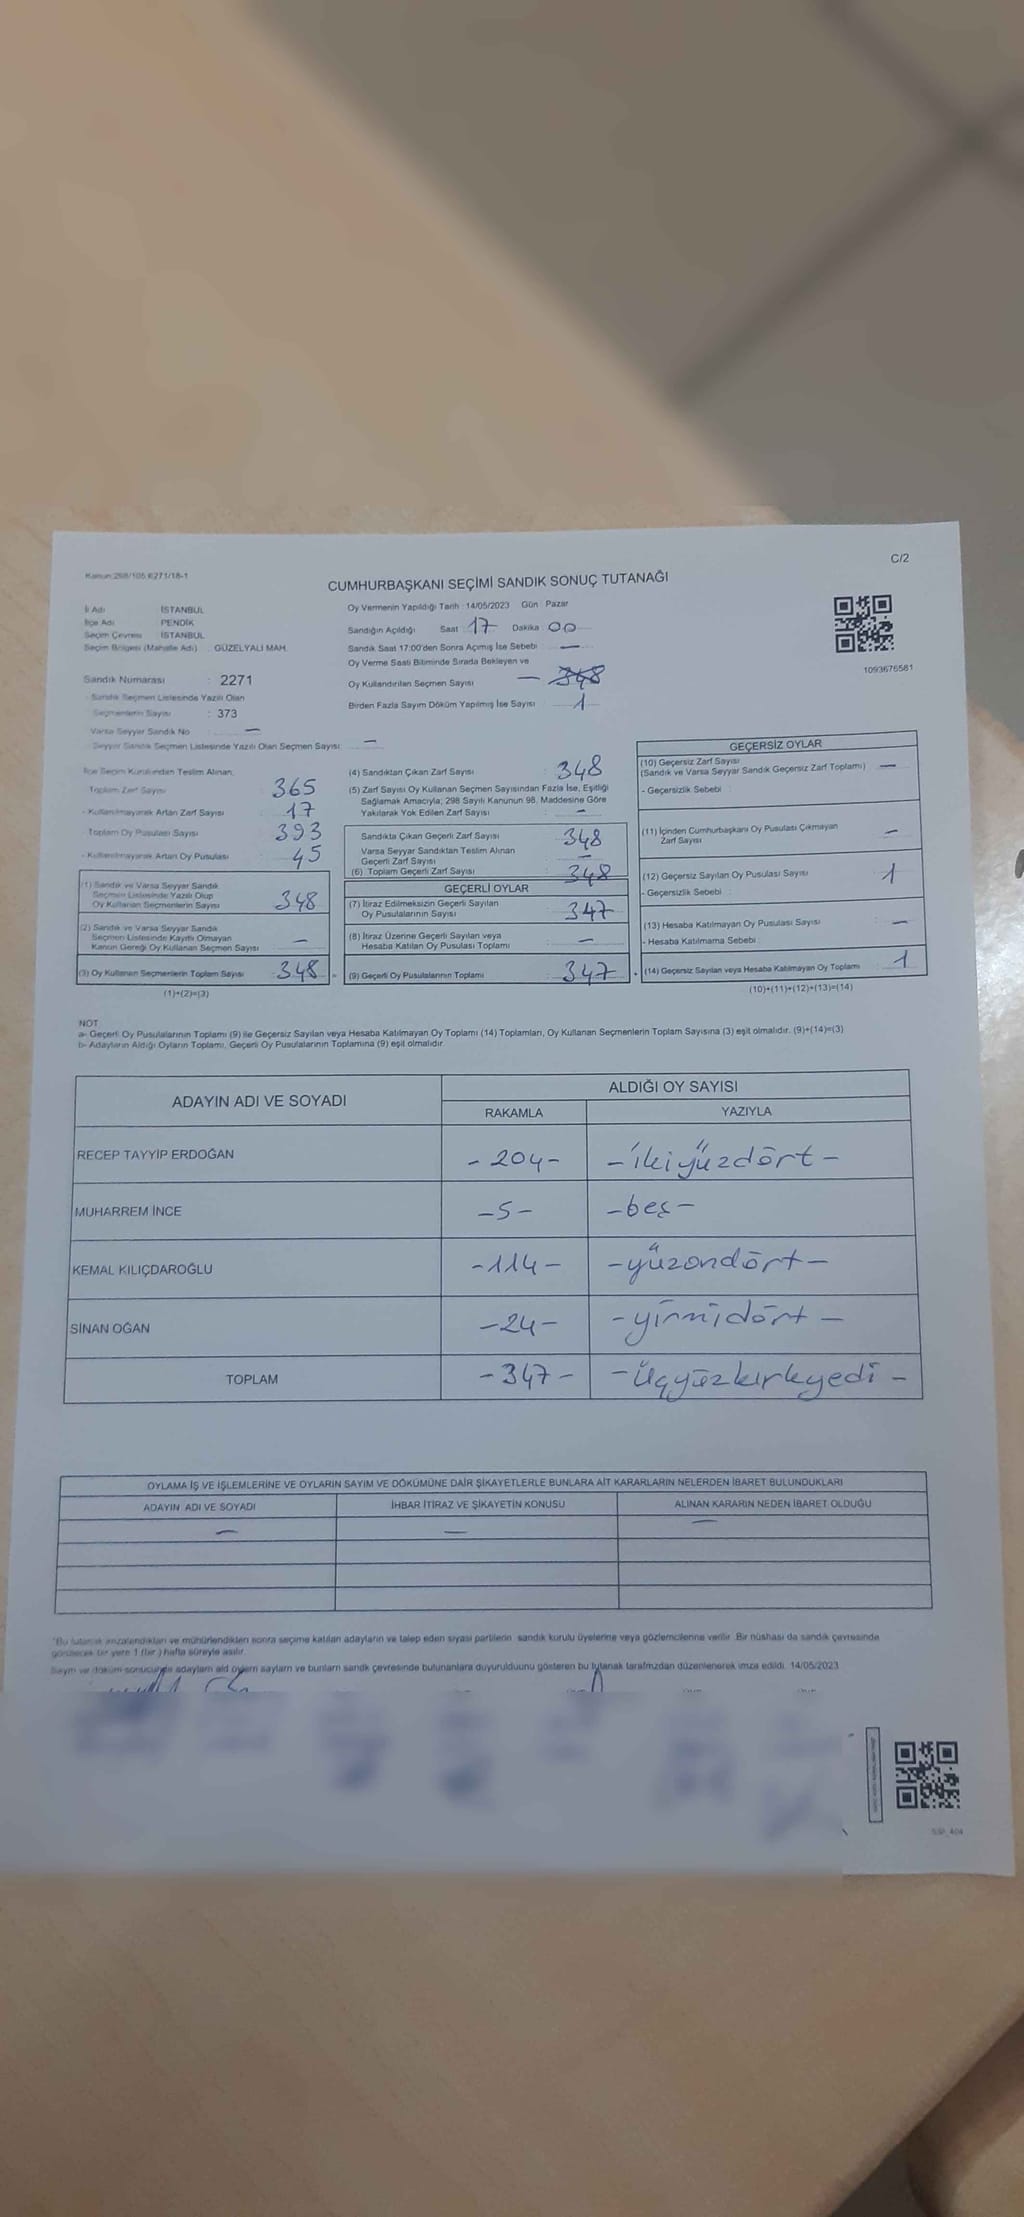 C/2
Kanun:298/105 6271/18-1
CUMHURBAŞKANI SEÇİMİ SANDIK SONUÇ TUTANAĞI
İl Adı İSTANBUL
İlçe Adı PENDİK
Seçim Çevresi İSTANBUL
Seçim Bölgesi (Mahalle Adı) : GÜZELYALI MAH.
Sandık Numarası : 2271
Sandık Seçmen Listesinde Yazılı Olan
Seçmenlerin Sayısı : 373
Varsa Seyyar Sandık No —
Seyyar Sandık Seçmen Listesinde Yazılı Olan Seçmen Sayısı: —
Oy Vermenin Yapıldığı Tarih : 14/05/2023 Gün : Pazar
Sandığın Açıldığı Saat 17 Dakika 00
Sandık Saat 17:00'den Sonra Açımış İse Sebebi —
Oy Verme Saati Bitiminde Sırada Bekleyen ve
Oy Kullandırılan Seçmen Sayısı — 348
Birden Fazla Sayım Döküm Yapılmış İse Sayısı 1
1093676581
İlçe Seçim Kurulundan Teslim Alınan;
Toplam Zarf Sayısı 365
- Kullanılmayarak Artan Zarf Sayısı 17
Toplam Oy Pusulası Sayısı 393
- Kullanılmayarak Artan Oy Pusulası 45
(1) Sandık ve Varsa Seyyar Sandık
Seçmen Listesinde Yazılı Olup
Oy Kullanan Seçmenlerin Sayısı 348
(2) Sandık ve Varsa Seyyar Sandık
Seçmen Listesinde Kayıtlı Olmayan
Kanun Gereği Oy Kullanan Seçmen Sayısı —
(3) Oy Kullanan Seçmenlerin Toplam Sayısı 348
(1)+(2)=(3)
(4) Sandıktan Çıkan Zarf Sayısı : 348
(5) Zarf Sayısı Oy Kullanan Seçmen Sayısından Fazla İse, Eşitliği
Sağlamak Amacıyla; 298 Sayılı Kanunun 98. Maddesine Göre
Yakılarak Yok Edilen Zarf Sayısı : —
Sandıkta Çıkan Geçerli Zarf Sayısı 348
Varsa Seyyar Sandıktan Teslim Alınan
Geçerli Zarf Sayısı —
(6) Toplam Geçerli Zarf Sayısı 348
GEÇERLİ OYLAR
(7) İtiraz Edilmeksizin Geçerli Sayılan
Oy Pusulalarının Sayısı 347
(8) İtiraz Üzerine Geçerli Sayılan veya
Hesaba Katılan Oy Pusulası Toplamı —
(9) Geçerli Oy Pusulalarının Toplamı 347
GEÇERSİZ OYLAR
(10) Geçersiz Zarf Sayısı
(Sandık ve Varsa Seyyar Sandık Geçersiz Zarf Toplamı) —
- Geçersizlik Sebebi :
(11) İçinden Cumhurbaşkanı Oy Pusulası Çıkmayan
Zarf Sayısı —
(12) Geçersiz Sayılan Oy Pusulası Sayısı 1
- Geçersizlik Sebebi :
(13) Hesaba Katılmayan Oy Pusulası Sayısı —
- Hesaba Katılmama Sebebi :
(14) Geçersiz Sayılan veya Hesaba Katılmayan Oy Toplamı 1
(10)+(11)+(12)+(13)=(14)
NOT
a- Geçerli Oy Pusulalarının Toplamı (9) ile Geçersiz Sayılan veya Hesaba Katılmayan Oy Toplamı (14) Toplamları, Oy Kullanan Seçmenlerin Toplam Sayısına (3) eşit olmalıdır. (9)+(14)=(3)
b- Adayların Aldığı Oyların Toplamı, Geçerli Oy Pusulalarının Toplamına (9) eşit olmalıdır.
ADAYIN ADI VE SOYADI ALDIĞI OY SAYISI
RAKAMLA YAZIYLA
RECEP TAYYİP ERDOĞAN - 204 - - ikiyüzdört -
MUHARREM İNCE - 5 - - beş -
KEMAL KILIÇDAROĞLU - 114 - - yüzondört -
SİNAN OĞAN - 24 - - yirmidört -
TOPLAM - 347 - - üçyüzkırkyedi -
OYLAMA İŞ VE İŞLEMLERİNE VE OYLARIN SAYIM VE DÖKÜMÜNE DAİR ŞİKAYETLERLE BUNLARA AİT KARARLARIN NELERDEN İBARET BULUNDUKLARI
ADAYIN ADI VE SOYADI İHBAR İTİRAZ VE ŞİKAYETİN KONUSU ALINAN KARARIN NEDEN İBARET OLDUĞU
— — —
*Bu tutanak imzalandıktan ve mühürlendikten sonra seçime katılan adayların ve talep eden siyasi partilerin sandık kurulu üyelerine veya gözlemcilerine verilir. Bir nüshası da sandık çevresinde
görülecek bir yere 1 (bir ) hafta süreyle asılır.
Sayım ve döküm sonucunda adayların ald oyların sayların ve bunların sandk çevresinde bulunanlara duyurulduunu gösteren bu tutanak tarafmzdan düzenlenerek imza edildi. 14/05/2023